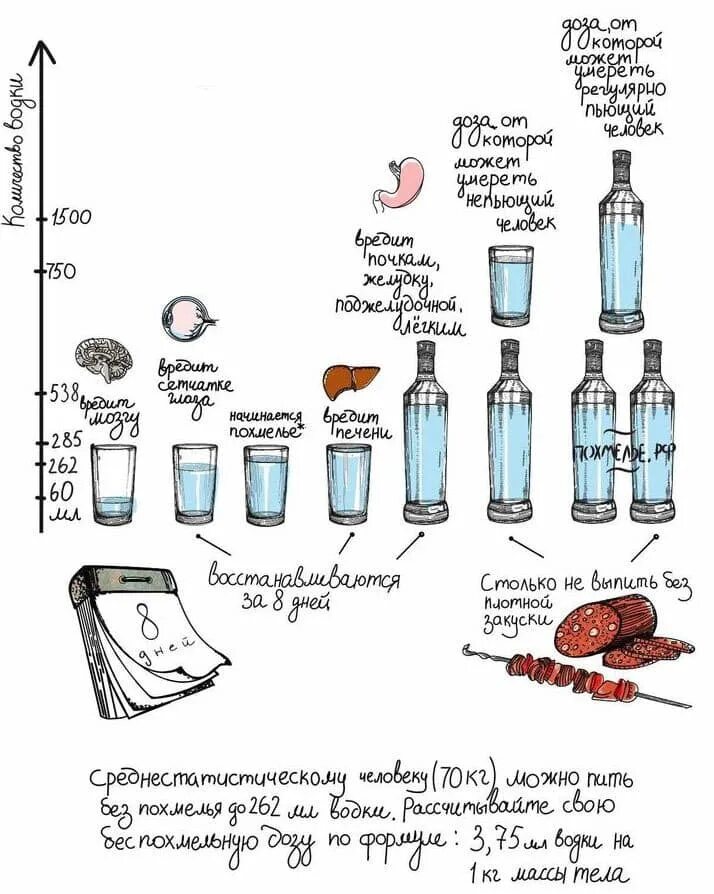 Количество водки
1500
750
538
285
262
60
мл
вредит
мозгу
вредит
сетчатке
глаза
начинается
похмелье*
вредит
печени
вредит
почкам,
желудку,
поджелудочной,
лёгким
доза, от
которой
может
умереть
непьющий
человек
доза, от
которой
может
умереть
регулярно
пьющий
человек
ПОХМЕЛЬЕ.РФ
8
дней
Восстанавливаются
за 8 дней
Столько не выпить без
плотной
закуски
Среднестатистическому человеку (70 кг) можно пить
без похмелья до 262 мл водки. Рассчитывайте свою
беспохмельную дозу по формуле: 3,75 мл водки на
1 кг массы тела